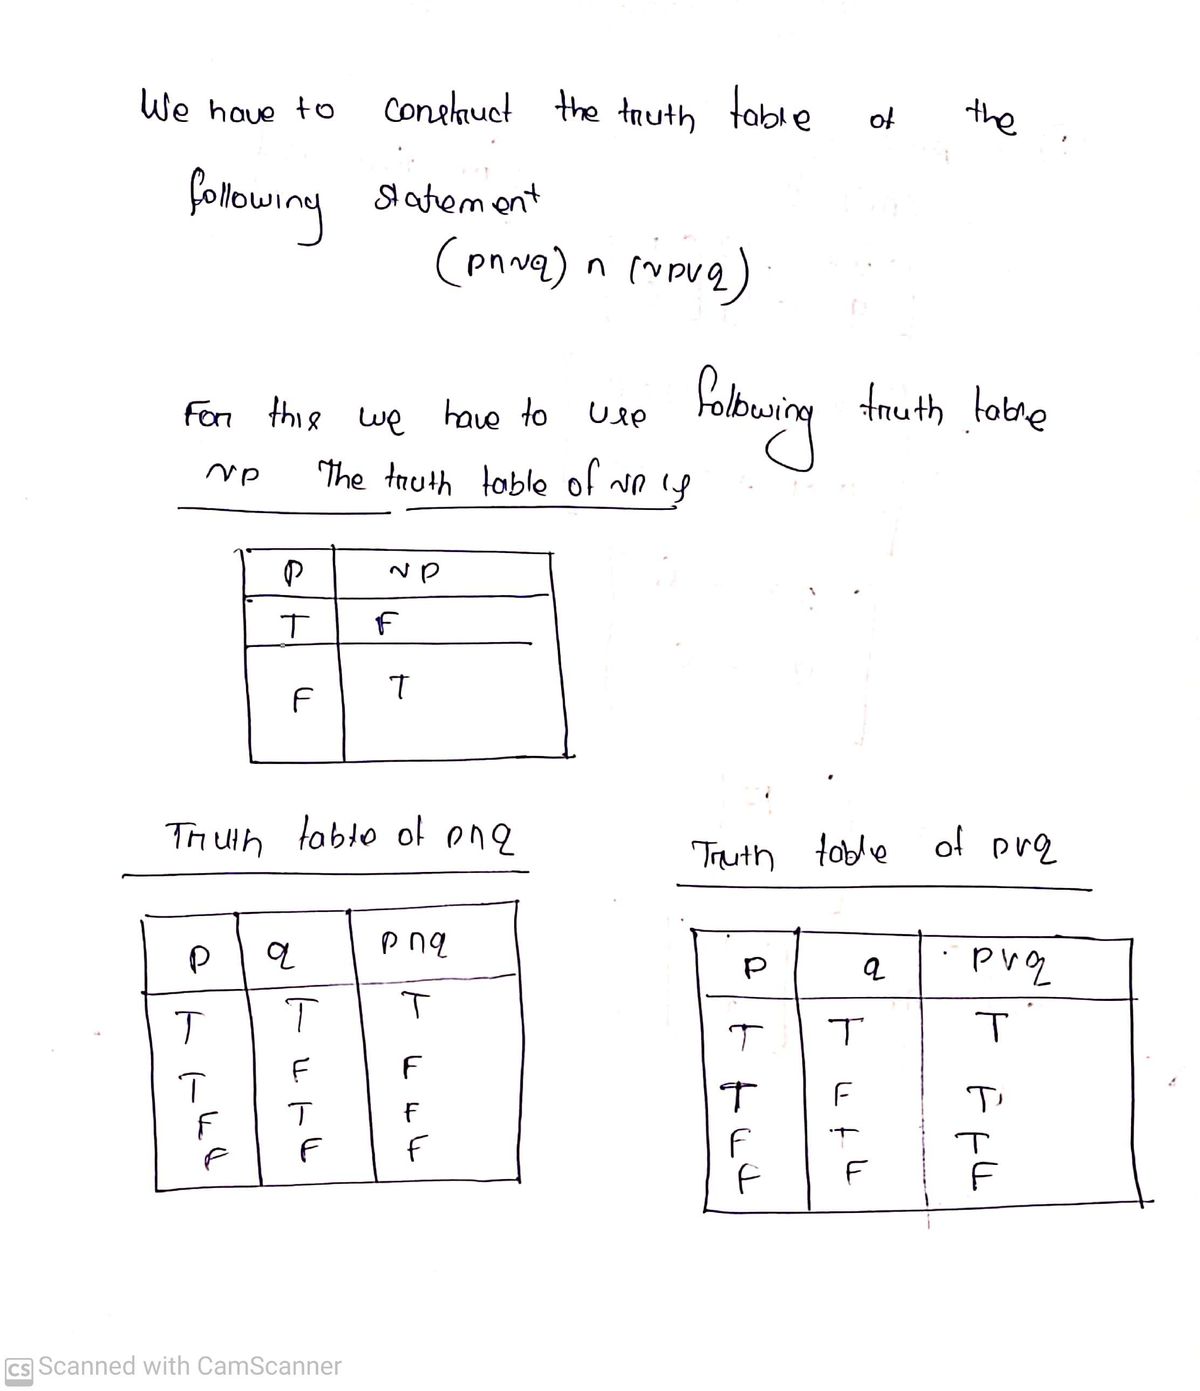 We have to construct the truth table of the
following statement
(p∩~q) ∩ (~p∨q)
For this we have to use following truth table
~p The truth table of ~p is
P ~P
T F
F T
Truth table of p∩q
P q p∩q
T T T
T F F
F T F
F F F
Truth table of p∨q
P q p∨q
T T T
T F T
F T T
F F F
CS Scanned with CamScanner